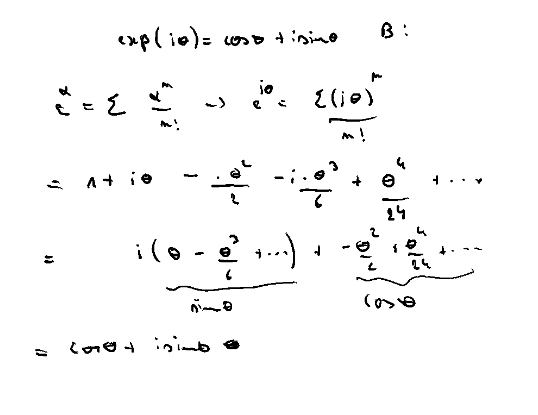 exp(iθ) = cosθ + isinθ B :
e^x = Σ x^n/n! → e^iθ = Σ(iθ)^n/n!
= 1 + iθ - . θ^2/2 - i . θ^3/6 + θ^4/24 + ...
= i ( θ - θ^3/6 + ... ) + -θ^2/2 + θ^4/24 + ...
sinθ cosθ
= cosθ + isinθ